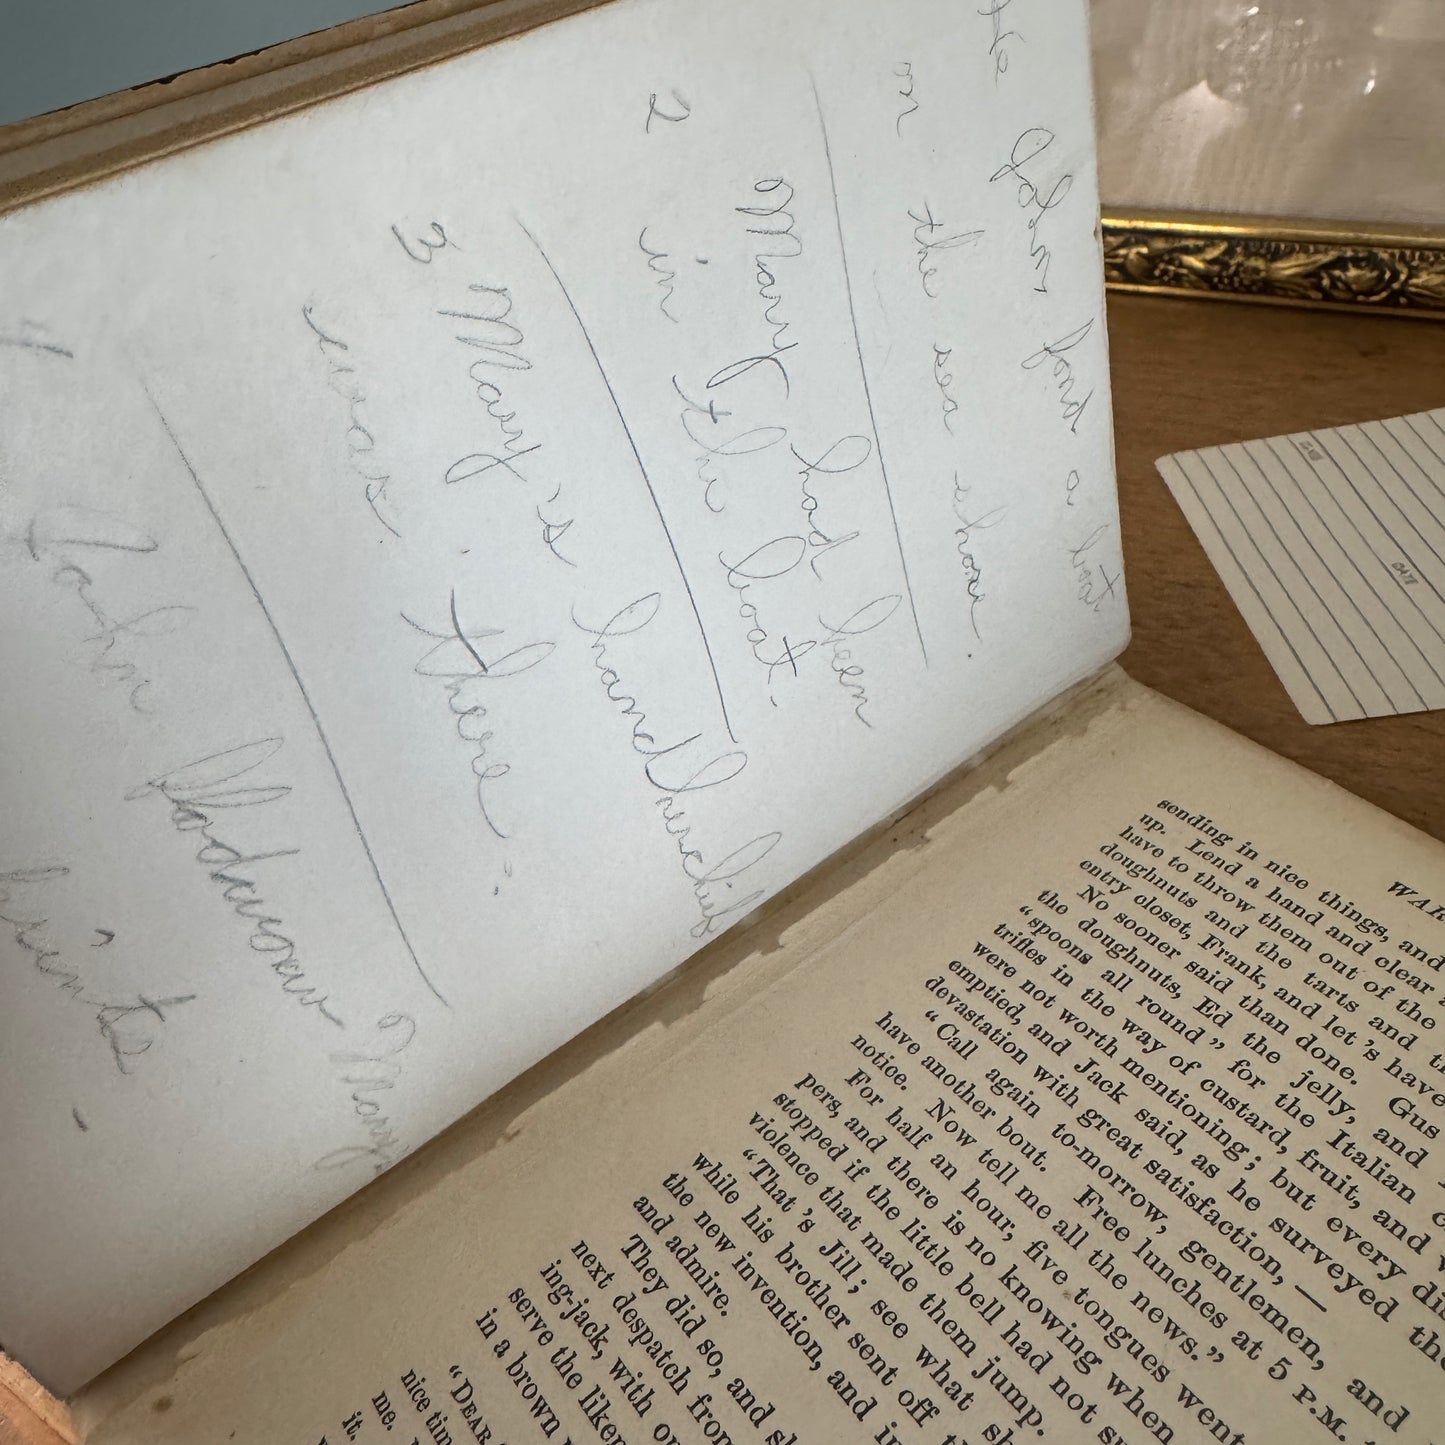 John found a boat
on the sea shore.
2 Mary had been
in the boat.
3 Mary's handkerchief
was there.
4 John followed Mary
WAR
sending in nice things, and
up. Lend a hand and clear
have to throw them out of the
doughnuts and the tarts and
entry closet, Frank, and let's have
No sooner said than done. Gus
the doughnuts, Ed the jelly, and
"spoons all round" for the Italian
trifles in the way of custard, fruit, and
were not worth mentioning; but every
emptied, and Jack said, as he surveyed the
devastation with great satisfaction, —
"Call again to-morrow, gentlemen, and
have another bout. Free lunches at 5 P.M.
notice. Now tell me all the news."
For half an hour, five tongues went
pers, and there is no knowing when
stopped if the little bell had not
violence that made them jump.
"That's Jill; see what
while his brother sent off
the new invention, and
and admire.
They did so, and
next despatch from
ing-jack, with
serve the
in a brown
"DEAR
nice
me.
it.